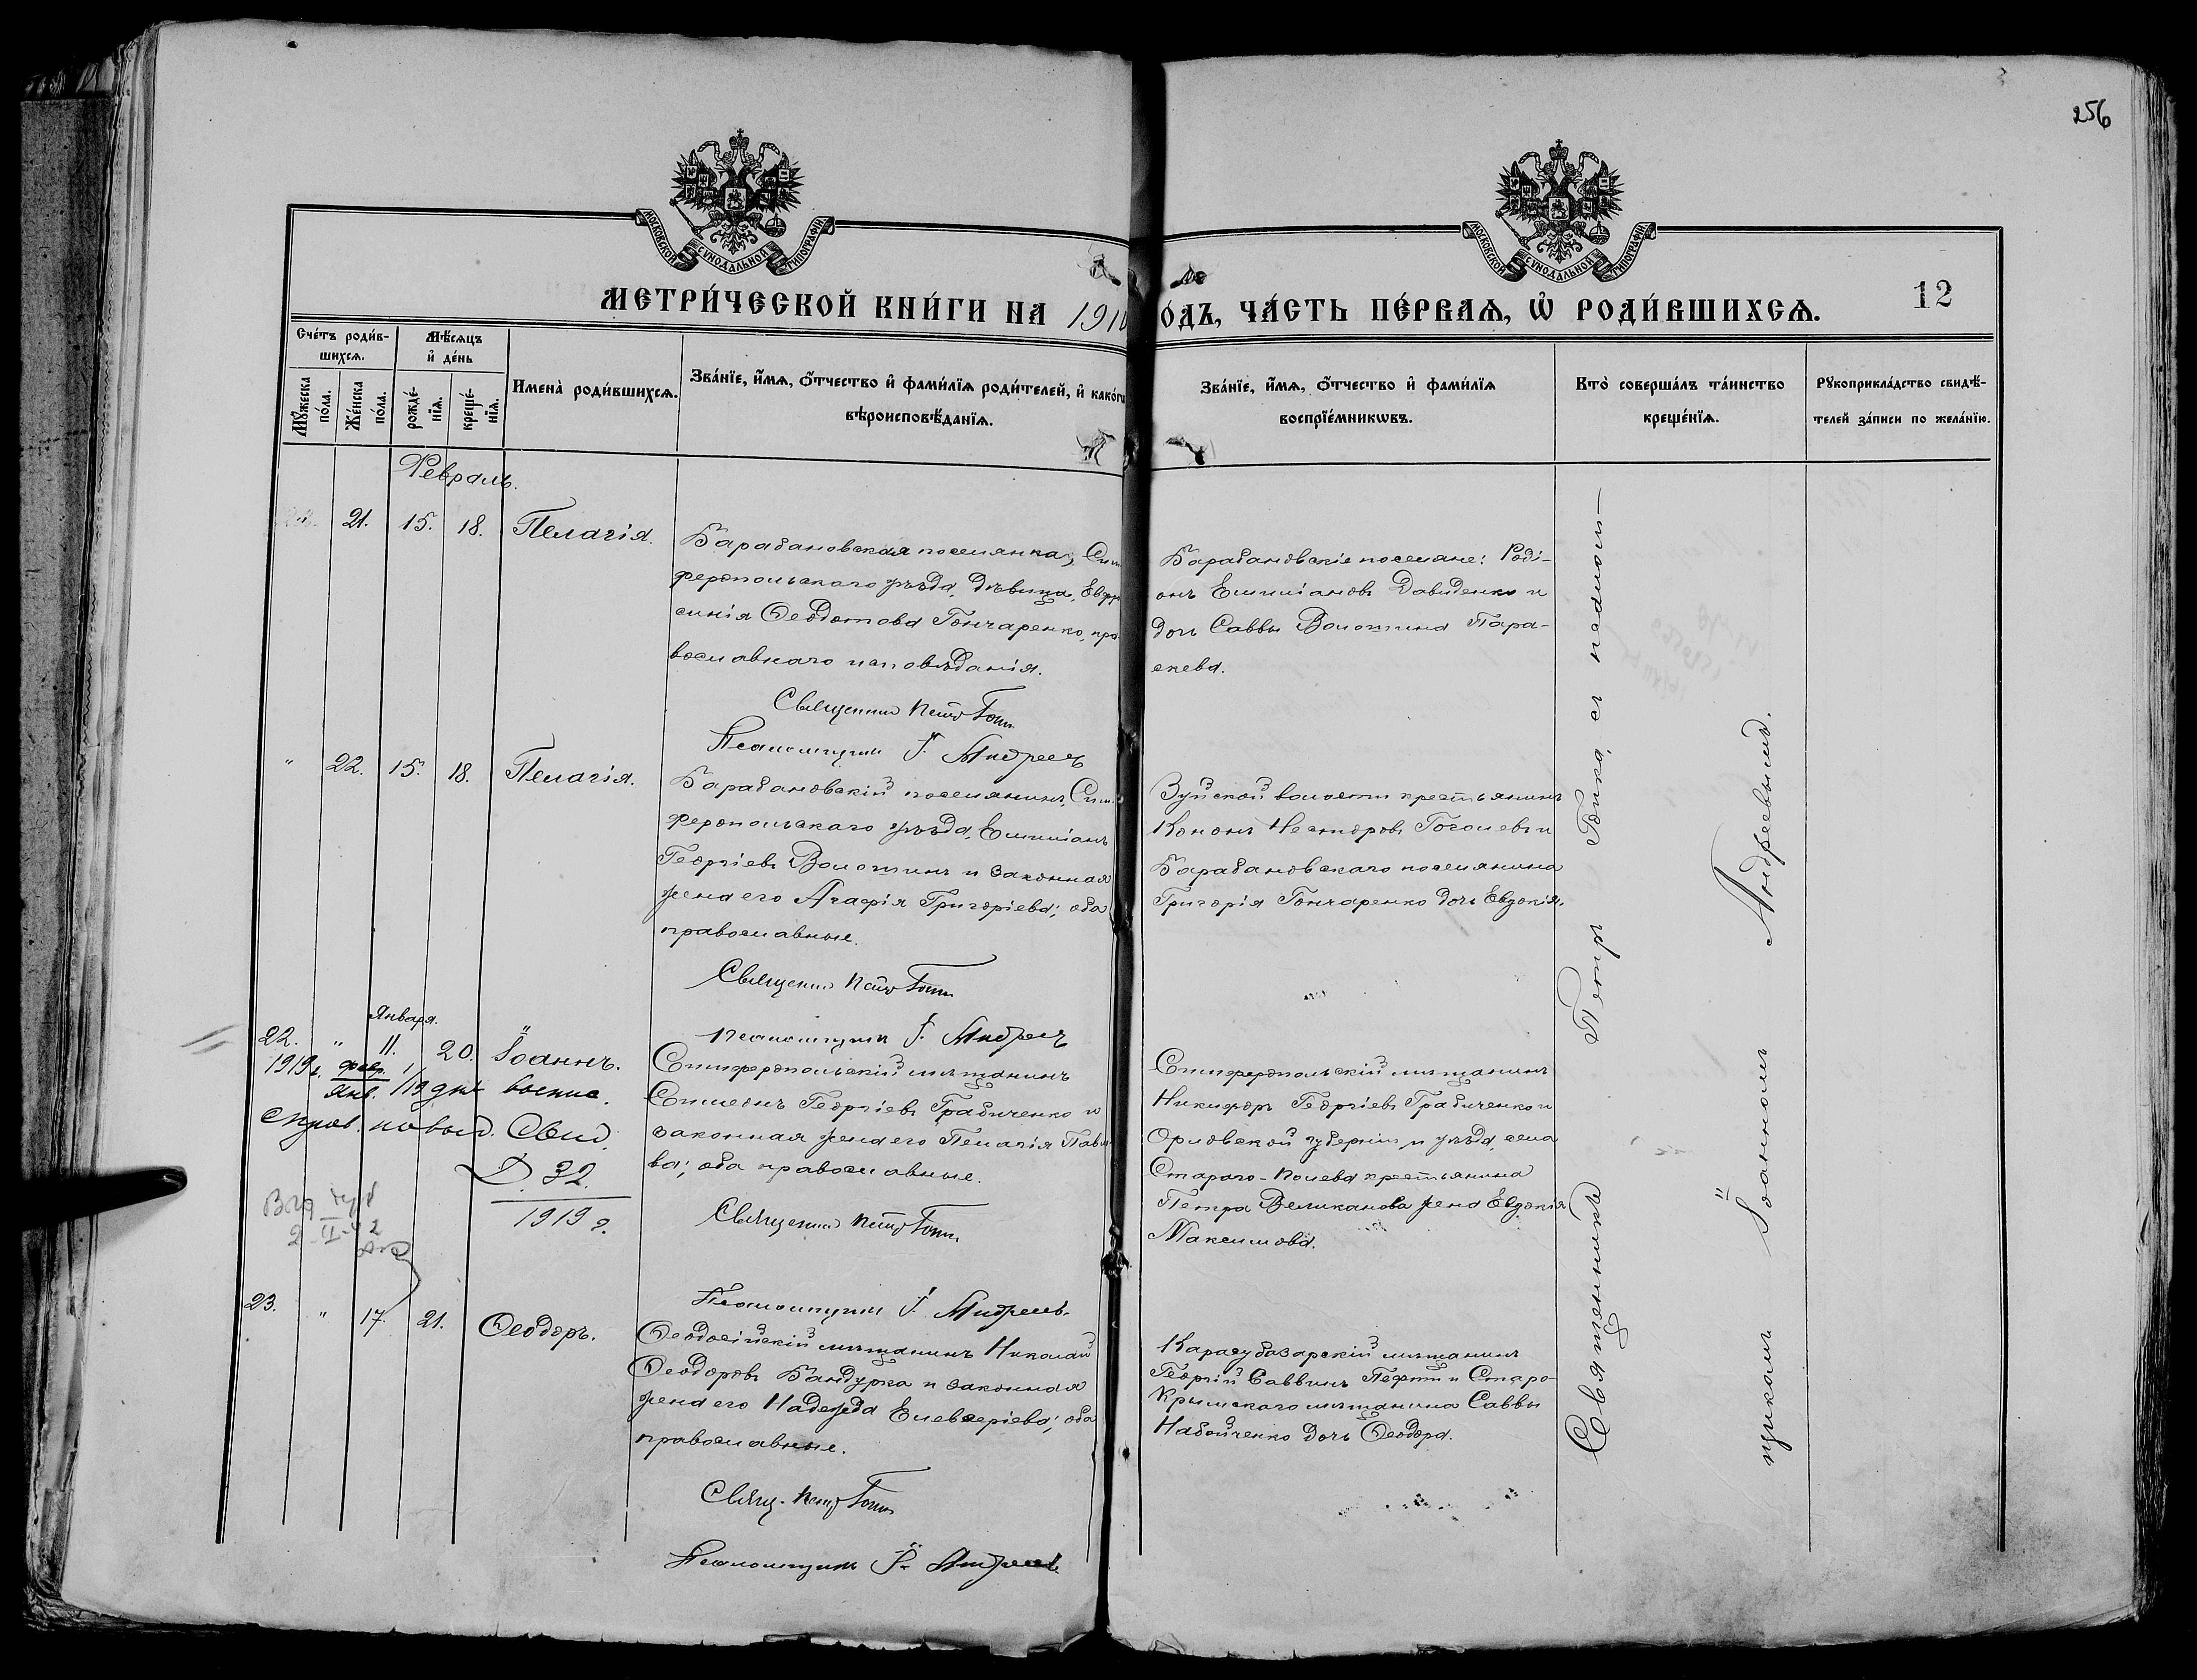 256
МОСКОВСКОЙ СѴНОДАЛЬНОЙ ТИПОГРАФІИ
МОСКОВСКОЙ СѴНОДАЛЬНОЙ ТИПОГРАФІИ
МЕТРИ́ЧЕСКОЙ КНИ́ГИ НА 191
ОДЪ, ЧА́СТЬ ПЕ́РВАѦ, Ѽ РОДИ́ВШИХСѦ.
12
Сче́тъ роди́в-
шихсѧ.
Мѣ́сѧцъ
и҆ де́нь
Мꙋ́жеска
по́ла.
Же́нска
по́ла.
рожде́-
нїѧ.
креще́-
нїѧ.
Имена̀ роди́вшихсѧ.
Зва́нїе, и҆́мѧ, ѻ҆́тчество и҆ фами́лїѧ роди́телей, и҆ како́гѡ
вѣроисповѣ́данїѧ.
Зва́нїе, и҆́мѧ, ѻ҆́тчество и҆ фами́лїѧ
воспрїе́мникѡвъ.
Кто̀ соверша́лъ та́инство
креще́нїѧ.
Рꙋкоприкла́дство свидѣ́-
телей за́писи по жела́нїю.
Февраль.
21. 15. 18. Пелагія.
Барабановская поселянка, Сим
феропольскаго уѣзда, дѣвица, Евфро
синія Ѳеодотова Гончаренко, пра
вославнаго исповѣданія.
Священник Петр Гоппъ
Псаломщикъ І. Андреевъ
Барабановскіе поселяне: Роді-
онъ Емиліановъ Давиденко и
дочь Саввы Волошина Пара-
скева.
" 22. 15. 18. Пелагія.
Барабановскій поселянинъ, Сим
феропольскаго уѣзда, Емиліанъ
Георгіевъ Волошинъ и законная
жена его Агафія Григоріева; оба
православные.
Священник Петр Гоппъ
Псаломщикъ І. Андреевъ
Зуйской волости крестьянинъ
Кононъ Несторовъ Гоголевъ и
Барабановскаго поселянина
Григорія Гончаренко дочь Евдокія.
Января.
22. " 11. 20. Іоаннъ.
1919г. февр. 1
Янв. /19 дня
Справ. на выд. Свид.
32
1919 г.
Симферопольскій мѣщанинъ
Симеонъ Георгіевъ Грабиченко и
законная жена его Пелагія Павло
ва; оба православные.
Священник Петр Гоппъ
Псаломщикъ І. Андреевъ.
Симферопольскій мѣщанинъ
Никифоръ Георгіевъ Грабиченко и
Орловской губерніи и уѣзда, села
Стараго-Полева крестьянина
Петра Великанова жена Евдокія
Максимова.
23. " 17. 21. Ѳеодоръ.
Ѳеодосійскій мѣщанинъ Николай
Ѳеодоровъ Бандурка и законная
жена его Надежда Елевѳеріева; оба
православные.
Свящ. Петр Гоппъ
Псаломщикъ І. Андреевъ
Карасубазарскій мѣщанинъ
Георгій Саввинъ и Старо-
Крымскаго мѣщанина Саввы
Набойченко дочь Ѳеодора.
Священникъ Петръ Гоппъ, съ псалом-
щикомъ Іоанномъ Андреевымъ.